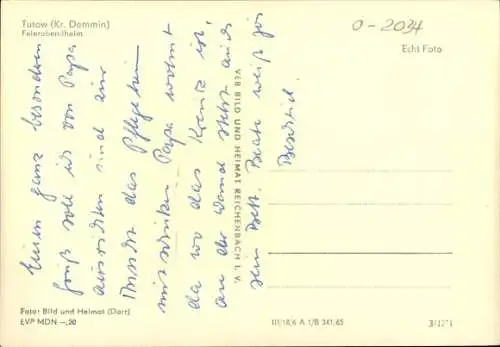 Tutow (Kr. Demmin)
Feierabendheim
O-2034
Echt Foto
Einen ganz besonderen
Gruß soll ich von Papa
ausrichten und auf
das Pflegeheim
mit Papa wohnt
da wo das Kreuz ist,
an der Wand steht auch
sein Bett. Beate weiß ja
Bescheid.
VEB BILD UND HEIMAT REICHENBACH I. V.
Foto: Bild und Heimat (Darr)
EVP MDN –,20
III/18/6 A 1/B 341/65